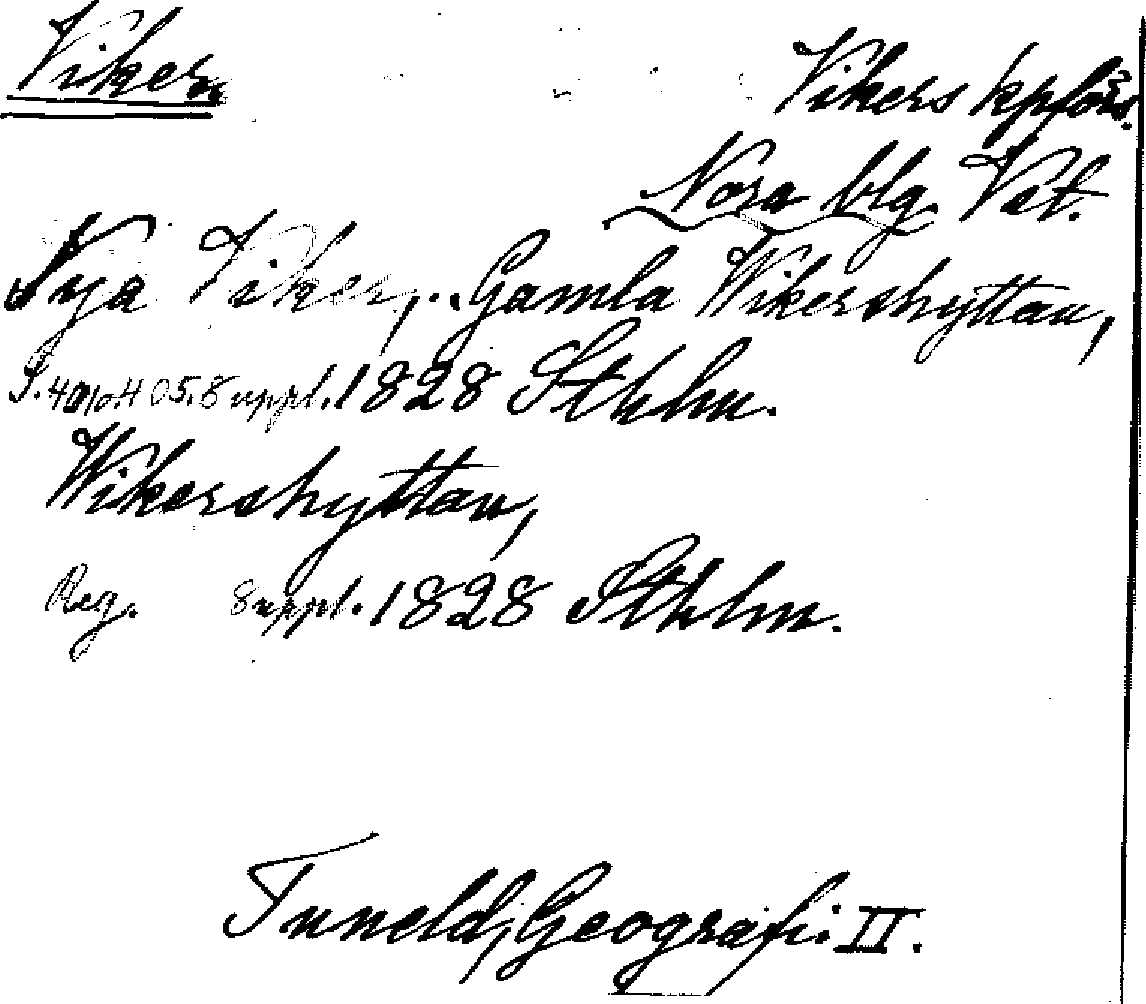 Viker
Vikers kpförs.
Nora blg. Vst.
Nya Viker, .. Gamla Wikershyttan,
S. 401 o 405. Suppl. 1828 Sthlm.
Wikershyttan,
Reg. Suppl. 1828 Sthlm.
Tuneld, Geografi II.